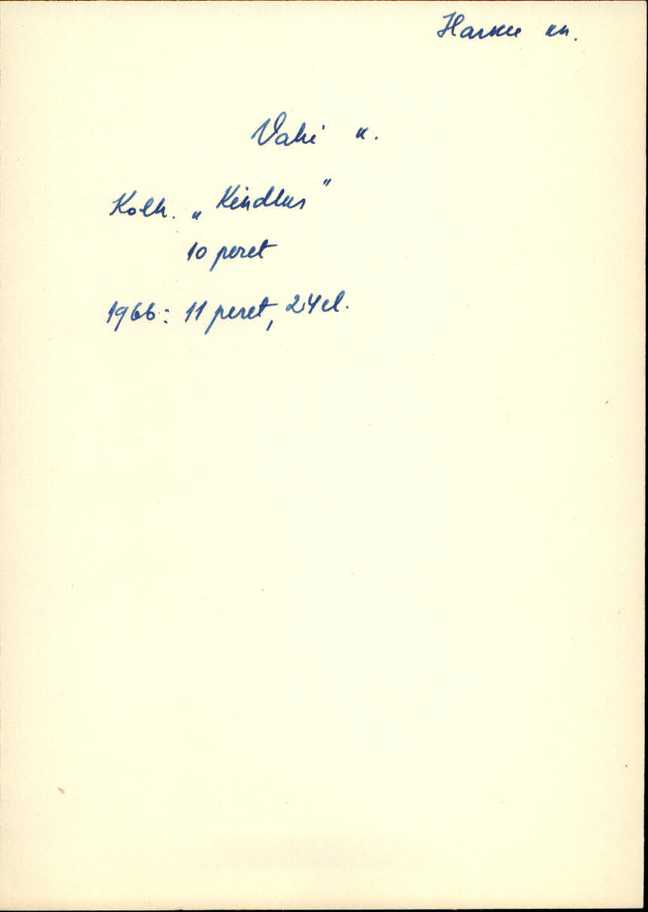 Harku kn.
Vahi k.
Kolh. „Kindlus"
10 peret
1966: 11 peret, 24 el.